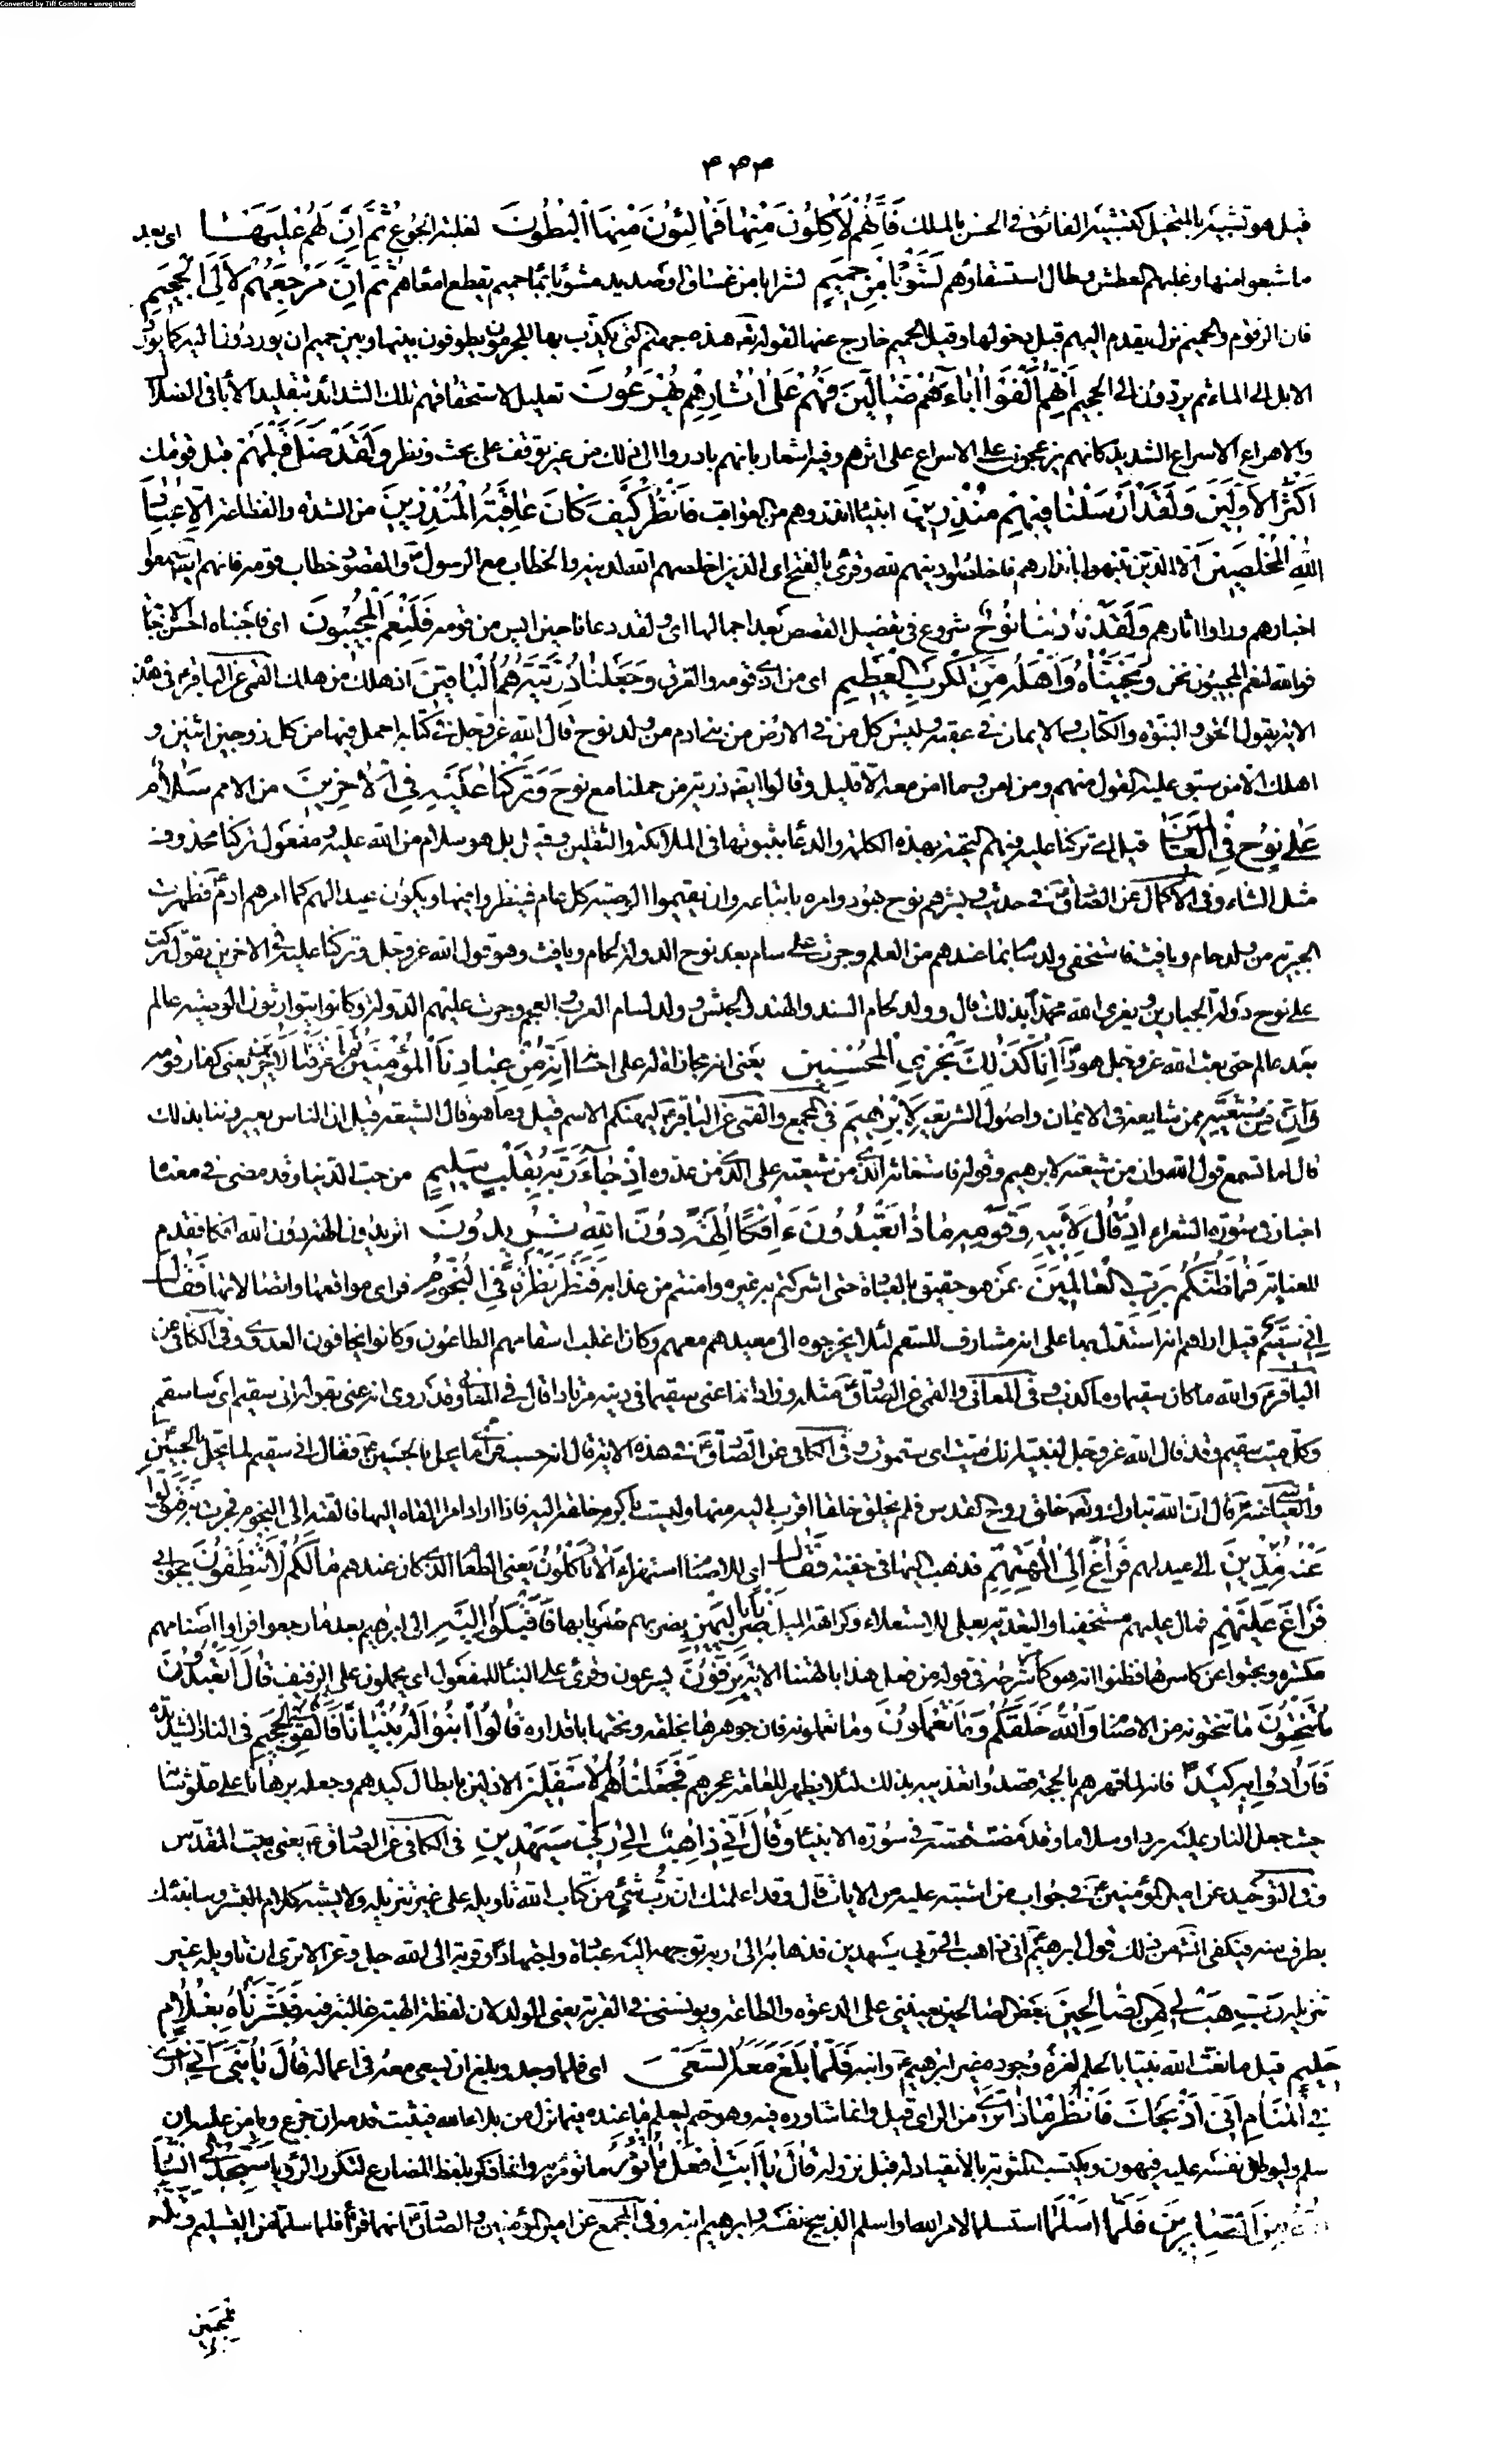 Converted by Tiff Combine - unregistered
۴۴۴
قيل هو تشبيه بالمتخيل كتشبيه الفائق في الحسن بالملك فَاِنَّهُمْ لَاٰكِلُونَ مِنْهَا فَمَالِئُونَ مِنْهَا الْبُطُونَ لغلبة الجوع ثُمَّ اِنَّ لَهُمْ عَلَيْهَا اى بعد
ما شبعوا منها وغلبهم العطش وطال استسقاؤهم لَشَوْبًا مِنْ حَمِيمٍ لشرابا من غساق او صديد مشوبا بماء حميم يقطع امعاءهم ثُمَّ اِنَّ مَرْجِعَهُمْ لَاِلَى الْجَحِيمِ
فان الزقوم والحميم نزل يقدم اليهم قبل دخولها وقيل الحميم خارج عنها لقوله تعه هذه جهنم التى يكذب بها المجرمون يطوفون بينها وبين حميم ان يوردون اليه كما يورد
الابل الى الماء ثم يردون الى الجحيم اِنَّهُمْ اَلْفَوْا اٰبَاءَهُمْ ضَالِّينَ فَهُمْ عَلٰى اٰثَارِهِمْ يُهْرَعُونَ تعليل لاستحقاقهم تلك الشدائد بتقليد الاباء فى الضلال
والاهراع الاسراع الشديد كانهم يزعجون على الاسراع على اثرهم وفيه اشعار بانهم بادروا الى ذلك من غير توقف على بحث ونظر وَلَقَدْ ضَلَّ قَبْلَهُمْ قبل قومك
اَكْثَرُ الْاَوَّلِينَ وَلَقَدْ اَرْسَلْنَا فِيهِمْ مُنْذِرِينَ انبياء انذروهم من العواقب فَانْظُرْ كَيْفَ كَانَ عَاقِبَةُ الْمُنْذَرِينَ من الشدة والفظاعة اِلَّا عِبَادَ
اللّٰهِ الْمُخْلَصِينَ الا الذين تنبهوا بانذارهم فاخلصوا دينهم لله وقرئ بالفتح اى الذين اخلصهم الله لدينه والخطاب مع الرسول ص والمقصود خطاب قومه فانهم ايضا سمعوا
اخبارهم وراوا اثارهم وَلَقَدْ نَادٰينَا نُوحٌ شروع فى تفصيل القصص بعد اجمالها اى ولقد دعانا حين ايس من قومه فَلَنِعْمَ الْمُجِيبُونَ اى فاجبناه احسن الاجابة
فوالله لنعم المجيبون نحن وَنَجَّيْنَاهُ وَاَهْلَهُ مِنَ الْكَرْبِ الْعَظِيمِ اى من اذى قومه والغرق وَجَعَلْنَا ذُرِّيَّتَهُ هُمُ الْبَاقِينَ اذ هلك من هلك القمى عن الباقر ع فى هذه
الاية يقول الحق والنبوة والكتاب والايمان فى عقبه وليس كل من فى الارض من بنى ادم من ولد نوح قال الله عز وجل فى كتابه احمل فيها من كل زوجين اثنين و
اهلك الا من سبق عليه القول منهم ومن امن وما امن معه الا قليل وقال ايضا ذرية من حملنا مع نوح وَتَرَكْنَا عَلَيْهِ فِى الْاٰخِرِينَ من الامم سَلَامٌ
عَلٰى نُوحٍ فِى الْعَالَمِينَ قيل اى تركنا عليه فيهم التحية بهذه الكلمة والدعاء بثبوتها فى الملائكة والثقلين وقيل بل هو سلام من الله عليه ومفعول تركنا محذوف
مثل الثناء وفى الاكمال عن الصادق ع فى حديث وبشرهم نوح بهود وامره باتباعه وان يقيموا الوصية كل عام فينظروا فيها ويكون عيدا لهم كما امرهم ادم ع فظهرت
الجبرية من ولد حام ويافث فاستخفى ولد سام بما عندهم من العلم وجرت على سام بعد نوح الدولة لحام ويافث وهو قول الله عز وجل وتركنا عليه فى الاخرين يقول تركت
على نوح دولة الجبارين ويعزى الله محمدا ص بذلك قال وولد لحام السند والهند والحبش وولد لسام العرب والعجم وجرت عليهم الدولة وكانوا يتوارثون الوصية عالم
بعد عالم حتى بعث الله عز وجل هودا اِنَّا كَذٰلِكَ نَجْزِى الْمُحْسِنِينَ يعنى انه مجازاة له على احسانه اِنَّهُ مِنْ عِبَادِنَا الْمُؤْمِنِينَ ثُمَّ اَغْرَقْنَا الْاٰخَرِينَ يعنى كفار قومه
وَاِنَّ مِنْ شِيعَتِهِ ممن شايعه فى الايمان واصول الشريعة لَاِبْرٰهِيمَ فى المجمع والقمى عن الباقر ع ليهنكم الاسم قيل وما هو قال الشيعة قيل ان الناس يعيروننا بذلك
قال اما تسمع قول الله وان من شيعته لابرهيم وقوله فاستغاثه الذى من شيعته على الذى من عدوه اِذْ جَاءَ رَبَّهُ بِقَلْبٍ سَلِيمٍ من حب الدنيا وقد مضى فى معناه
اخبار فى سورة الشعراء اِذْ قَالَ لِاَبِيهِ وَقَوْمِهِ مَاذَا تَعْبُدُونَ ءَاِفْكًا اٰلِهَةً دُونَ اللّٰهِ تُرِيدُونَ اتريدون الهة دون الله افكا فقدم
للعناية فَمَا ظَنُّكُمْ بِرَبِّ الْعَالَمِينَ بمن هو حقيق بالعبادة حتى اشركتم به غيره وامنتم من عذابه فَنَظَرَ نَظْرَةً فِى النُّجُومِ فراى مواقعها واتصالاتها فَقَالَ
اِنِّى سَقِيمٌ قيل اراهم انه استدل بها على انه مشارف للسقم لئلا يخرجوه الى معيدهم معهم وكان اغلب اسقامهم الطاعون وكانوا يخافون العدوى وفى الكافى عن
الباقر ع والله ما كان سقيما وما كذب وفى المعانى والقمى عن الصادق ع مثله وزاد انما عنى سقيما فى دينه مرتادا قال فى المعانى وقد روى انه عنى بقوله انى سقيم اى ساسقم
وكل ميت سقيم وقد قال الله عز وجل لنبيه انك ميت اى ستموت وفى الكافى عن الصادق ع فى هذه الاية قال انه حسب فراى ما يحل بالحسين ع فقال انى سقيم لما يحل بالحسين
والعياشى عنه ع قال ان الله تبارك وتعه خلق روح القدس فلم يخلق خلقا اقرب اليه منها وليست باكرم خلقه اليه فاذا اراد امرا القاه اليها فالقته الى النجوم فجرت به فَتَوَلَّوْا
عَنْهُ مُدْبِرِينَ الى عيدلهم فَرَاغَ اِلٰى اٰلِهَتِهِمْ فذهب اليها فى خفية فَقَالَ اى للاصنام استهزاء اَلَا تَأْكُلُونَ يعنى الطعام الذى كان عندهم مَالَكُمْ لَا تَنْطِقُونَ بجوابى
فَرَاغَ عَلَيْهِمْ فمال عليهم مستخفيا والتعدية بعلى للاستعلاء وكراهة الميل ضَرْبًا بِالْيَمِينِ يضربهم ضربا بها فَاَقْبَلُوا اِلَيْهِ الى ابرهيم بعد ما رجعوا فراوا اصنامهم
مكسرة وبحثوا عن كاسرها فظنوا انه هو كما شرحه فى قوله من فعل هذا بالهتنا الاية يَزِفُّونَ يسرعون وقرئ على البناء للمفعول اى يحملون على الزفيف قَالَ اَتَعْبُدُونَ
مَا تَنْحِتُونَ ما تنحتونه من الاصنام وَاللّٰهُ خَلَقَكُمْ وَمَا تَعْمَلُونَ وما تعملونه فان جوهرها بخلقه ونحتها باقداره قَالُوا ابْنُوا لَهُ بُنْيَانًا فَاَلْقُوهُ فِى الْجَحِيمِ فى النار الشديدة
فَاَرَادُوا بِهِ كَيْدًا فانه لما قهرهم بالحجة قصدوا تعذيبه بذلك لئلا يظهر للعامة عجزهم فَجَعَلْنَاهُمُ الْاَسْفَلِينَ الاذلين بابطال كيدهم وجعله برهانا على علو شانه
حيث جعل النار عليه بردا وسلاما وقد مضت قصته فى سورة الانبياء وَقَالَ اِنِّى ذَاهِبٌ اِلٰى رَبِّى سَيَهْدِينِ فى الكافى عن الصادق ع يعنى بيت المقدس
وفى التوحيد عن امير المؤمنين ع فى جواب من اشتبه عليه من الايات قال وقد اعلمتك ان رب شئ من كتاب الله تاويله على غير تنزيله ولا يشبه كلام البشر وسانبئك
بطرف منه فيكفى انشاء من ذلك قول ابرهيم ع انى ذاهب الى ربى سيهدين فذهابه الى ربه توجهه اليه عبادة واجتهادا وقربة الى الله جل وعز الا ترى ان تاويله غير
تنزيله رَبِّ هَبْ لِى مِنَ الصَّالِحِينَ بعض الصالحين يعيننى على الدعوة والطاعة ويونسنى فى الغربة يعنى الولد لان لفظة الهبة غالبة فيه فَبَشَّرْنَاهُ بِغُلَامٍ
حَلِيمٍ قيل ما نعت الله نبيا بالحلم لعزة وجوده غير ابرهيم ع وابنه فَلَمَّا بَلَغَ مَعَهُ السَّعْىَ اى فلما وجد وبلغ ان يسعى معه فى اعماله قَالَ يَا بُنَىَّ اِنِّى اَرٰى
فِى الْمَنَامِ اَنِّى اَذْبَحُكَ فَانْظُرْ مَاذَا تَرٰى من الراى قيل وانما شاوره فيه وهو حتم ليعلم ما عنده فيما نزل من بلاء الله فيثبت قدمه ان جزع ويامن عليه ان
سلم وليوطن نفسه عليه فيهون ويكتسب المثوبة بالانقياد له قبل نزوله قَالَ يَا اَبَتِ افْعَلْ مَا تُؤْمَرُ ما تؤمر به وانما ذكر بلفظ المضارع لتكرر الرؤيا سَتَجِدُنِى اِنْ شَاءَ
اللّٰهُ مِنَ الصَّابِرِينَ فَلَمَّا اَسْلَمَا استسلما لامر الله او اسلم الذبيح نفسه وابرهيم ابنه وفى المجمع عن امير المؤمنين والصادق ع انهما قرءا فلما سلما من التسليم وَتَلَّهُ
للجبين